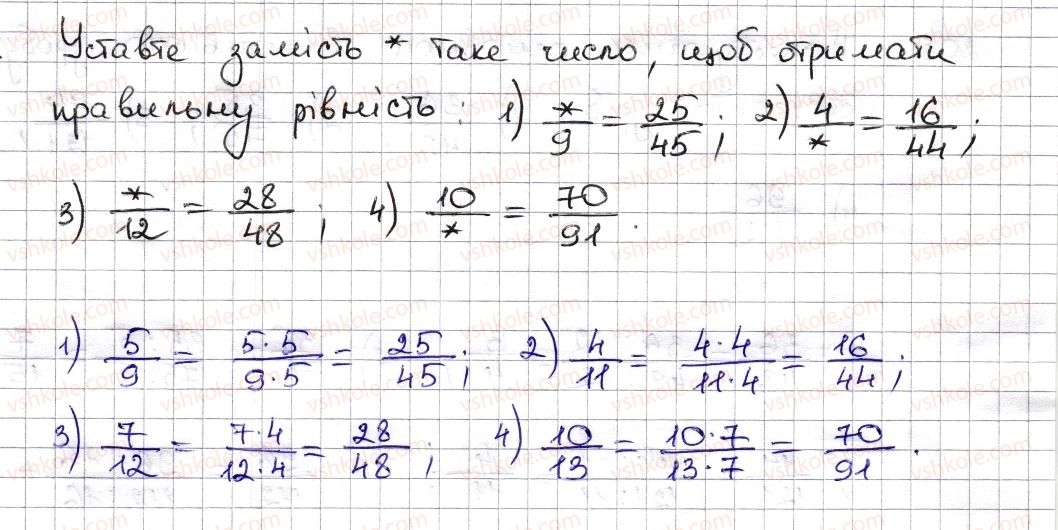 Уставте замість * таке число, щоб отримати
правильну рівність: 1) */9 = 25/45; 2) 4/* = 16/44;
3) */12 = 28/48; 4) 10/* = 70/91.
1) 5/9 = 5·5/9·5 = 25/45; 2) 4/11 = 4·4/11·4 = 16/44;
3) 7/12 = 7·4/12·4 = 28/48; 4) 10/13 = 10·7/13·7 = 70/91.